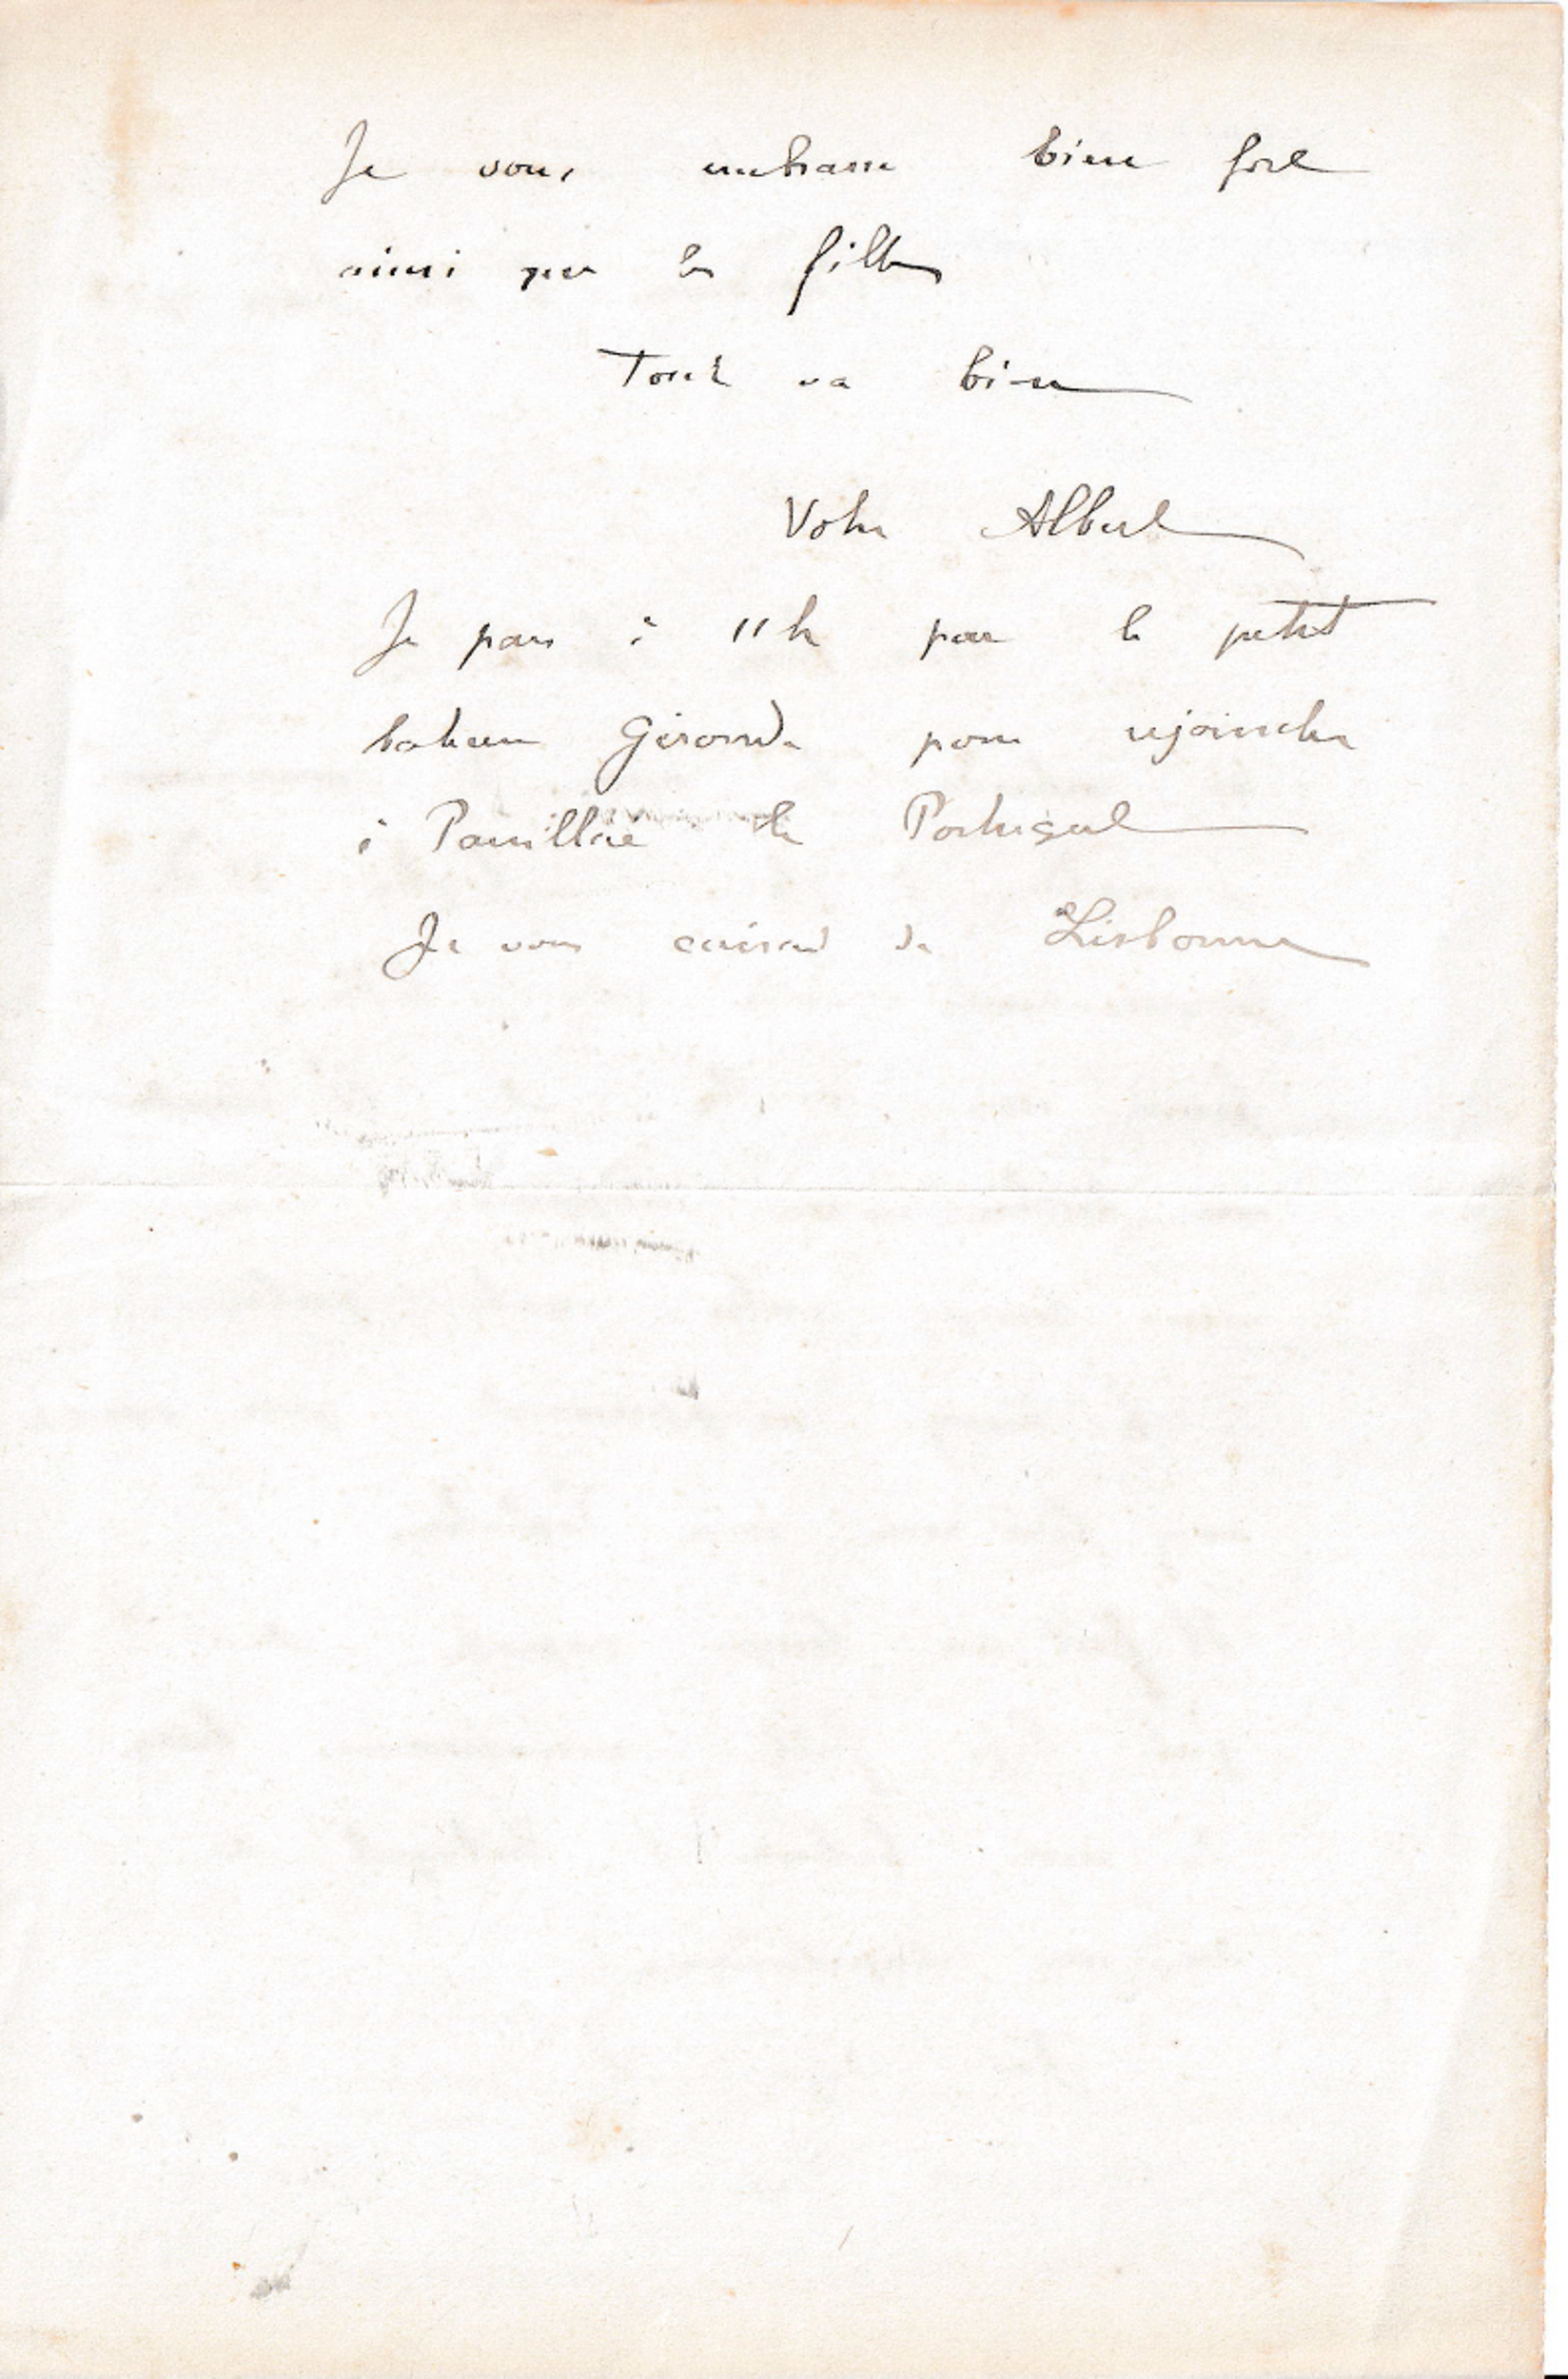 Je vous embrasse bien fort
ainsi que les filles
Tout va bien
Votre Albert
Je pars à 11h par le petit
bateau Gironde pour rejoindre
à Pauillac le Portugal
Je vous écrirai de Lisbonne